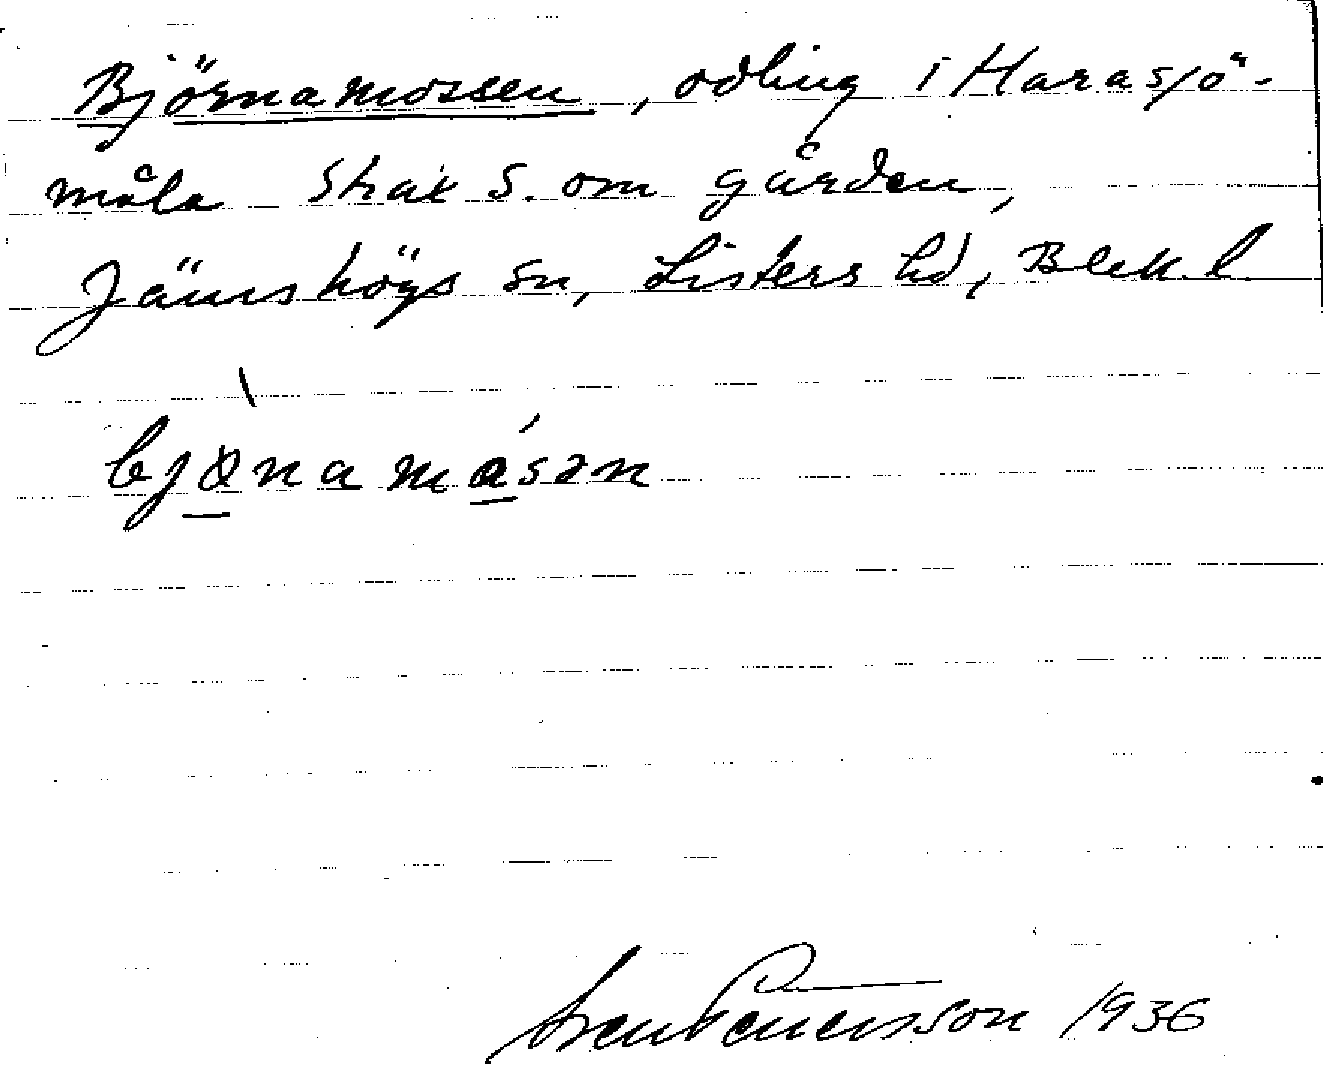 Björnamossen, odling i Harasjö-
måla strax S. om gården,
Jämshögs sn, Listers hd, Blek. l.
bjönamåsen
1936